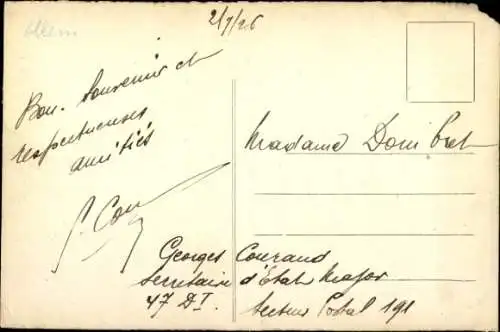 2/7/26
Bon Souvenir et
respectueuses
amitiés
G. Cou
Madame
Georges Couraud
Secrétaire d'Etat Major
47 DI. Secteur Postal 191